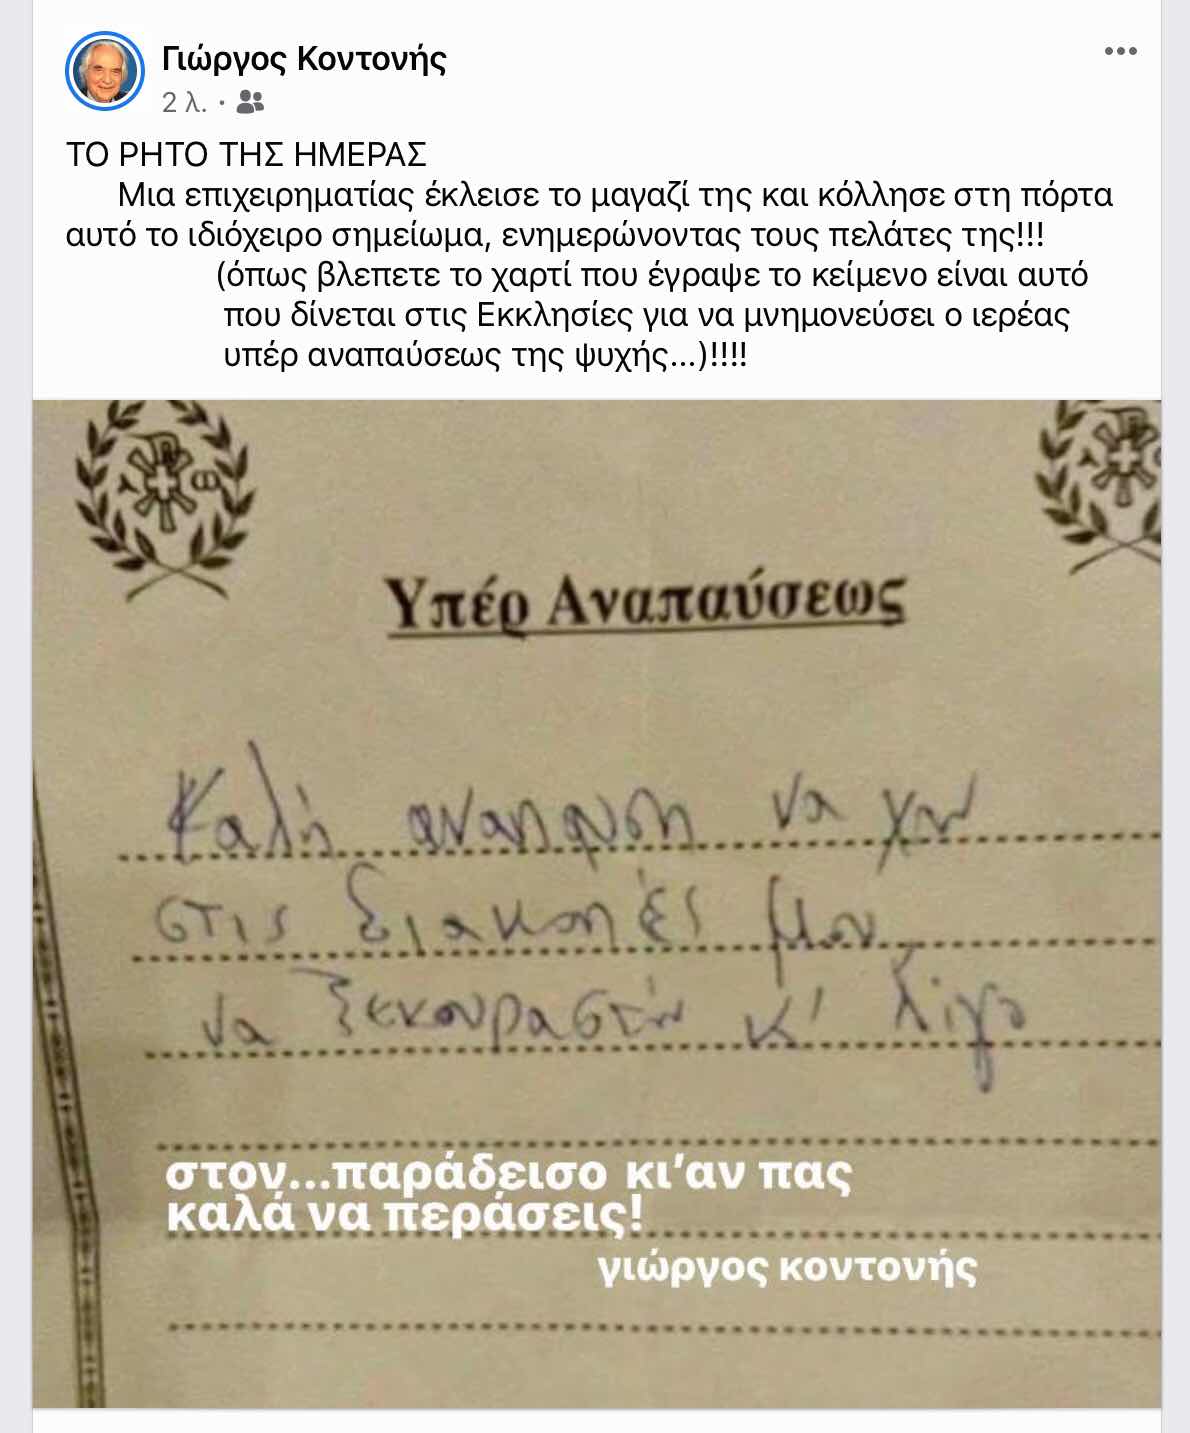 Γιώργος Κοντονής
2 λ. ·
ΤΟ ΡΗΤΟ ΤΗΣ ΗΜΕΡΑΣ
Μια επιχειρηματίας έκλεισε το μαγαζί της και κόλλησε στη πόρτα
αυτό το ιδιόχειρο σημείωμα, ενημερώνοντας τους πελάτες της!!!
(όπως βλεπετε το χαρτί που έγραψε το κείμενο είναι αυτό
που δίνεται στις Εκκλησίες για να μνημονεύσει ο ιερέας
υπέρ αναπαύσεως της ψυχής...)!!!!
Υπέρ Αναπαύσεως
Καλή αναπαυση να χω
στις διακοπές μου
να ξεκουραστώ κ' λίγο
στον...παράδεισο κι'αν πας
καλά να περάσεις!
γιώργος κοντονής